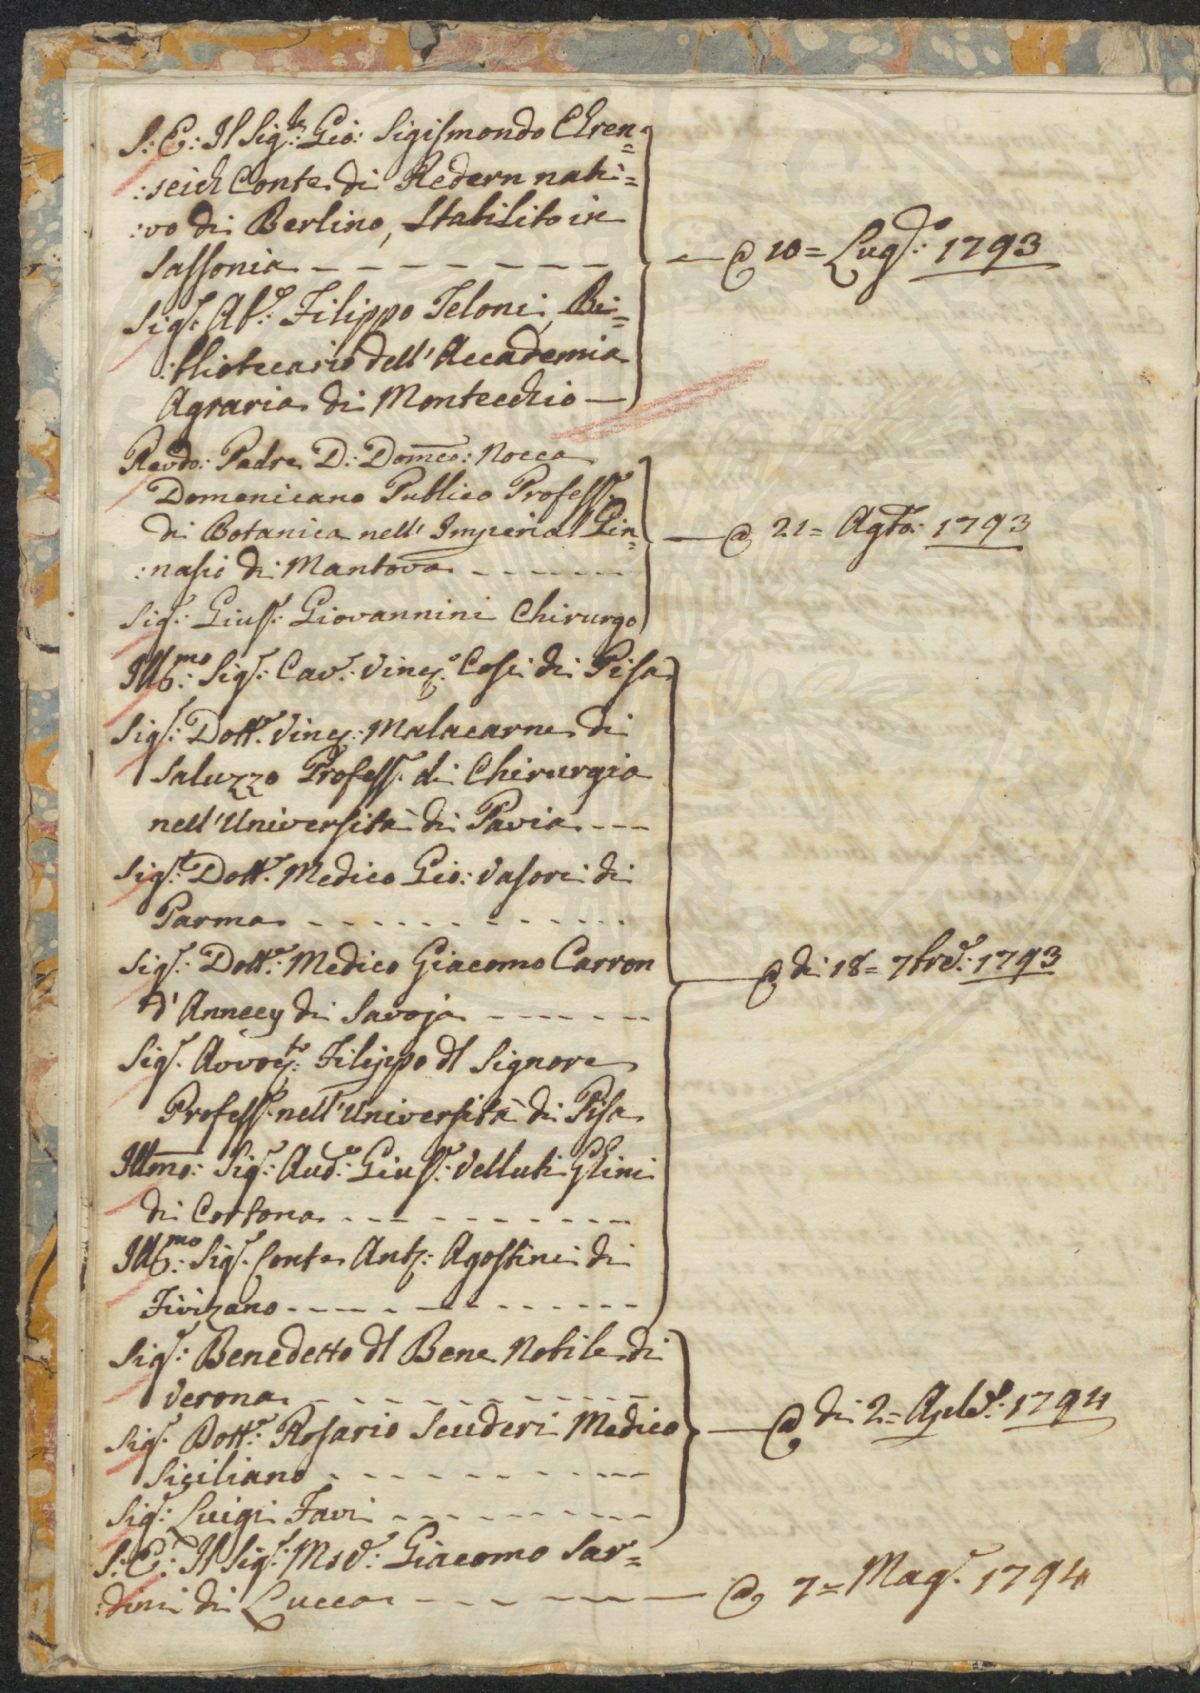 S: E: Il Sig.r Gio: Sigismondo Ehren=
:reich Conte di Redern nati=
:vo di Berlino, Stabilito in
Sassonia - - - - - - - -
@ 10= Lug.o: 1793
Sig.r Ab.e: Filippo Teloni, Bi=
:bliotecario dell'Accademia
Agraria di Montecchio —
Revdo: Padre D: Domco: Nocca
Domenicano Publico Profess.r
di Botanica nell'Imperial Gin=
:nasio di Mantova - - - - - -
@ 21= Agto: 1793
Sig.r: Gius.e: Giovannini Chirurgo
Ill.mo: Sig.r: Cav.r: Vinc.o: Cosi di Pisa
Sig.r: Dott.r Vinc.o: Malacarne di
Saluzzo Profess.r di Chirurgia
nell'Università di Pavia - - -
Sig.r: Dott.r Medico Gio: Vasori di
Parma - - - - - - - - - - -
Sig.r: Dott.r: Medico Giacomo Carron
d'Annecy di Savoja - - - - - -
@ di 18= 7bre: 1793
Sig.r Avvoc.to: Filippo dl Signore
Profess.r nell'Università di Pisa
Illmo: Sig.r: Aud.e: Gius.e: Velluti Ghini
di Cortona - - - - - - - - - -
Ill.mo: Sig.r Conte Ant.o: Agostini di
Fivizano - - - - - - - - - - -
Sig.r: Benedetto dl Bene Nobile di
Verona - - - - - - - - - -
Sig.r Dott.r: Rosario Scuderi Medico
Siciliano - - - - - - - - - -
@ di 2= Aple: 1794
Sig.r: Luigi Favi - - - - - - - -
S: E: Il Sig.r: Mse: Giacomo Sar=
:dini di Lucca - - - - - - - @ 7= Mag.o 1794